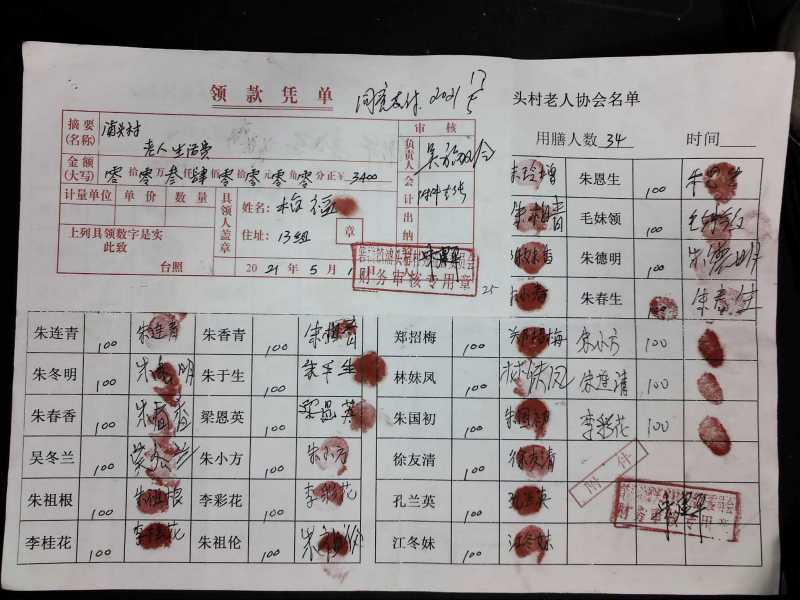 领款凭单
同意支付 2021 17/5
头村老人协会名单
用膳人数 34 时间
摘要(名称) 浦头村
老人生活费
审核
金额(大写) 零拾零万叁仟肆佰零拾零元零角零分正¥ 3400
负责人
会计
出纳
计量单位 单价 数量
具领人盖章
姓名:
住址:13组
章
上列具领数字是实
此致
台照
2021年5月1日
财务审核专用章
25
朱恩生 100
毛妹领 100
朱德明 100 朱德明
朱春生 100 朱春生
朱连青 100 朱连青 朱香青 100 郑招梅 100 郑招梅 朱小方 100
朱冬明 100 朱于生 100 朱于生 林妹凤 100 林妹凤 100
朱春香 100 朱春香 梁恩英 100 朱国初 100 朱国初 李彩花 100
吴冬兰 100 朱小方 100 朱小方 徐友清 100 徐友清
朱祖根 100 朱祖根 李彩花 100 李彩花 孔兰英 100 孔兰英
李桂花 100 李桂花 朱祖伦 100 江冬妹 100 江冬妹
附件
财务审核专用章